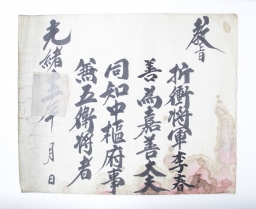 敎旨
折衝將軍李春
善爲嘉善大夫
同知中樞府事
兼五衛將者
光緖 年 月 日